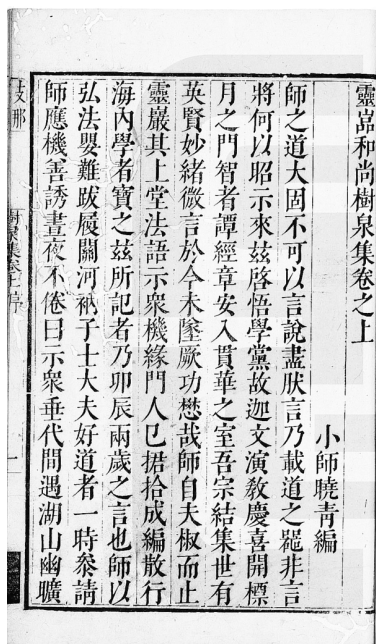 靈嵒和尚樹泉集卷之上
小師曉青編
師之道大固不可以言說盡肰言乃載道之器非言
將何以昭示來茲啓悟學黨故迦文演教慶喜開標
月之門智者譚經章安入貫華之室吾宗結集世有
英賢妙緒微言於今未墜厥功懋哉師自夫椒而止
靈巖其上堂法語示衆機緣門人已捃拾成編散行
海內學者寶之茲所記者乃卯辰兩歲之言也師以
弘法嬰難跋履關河衲子士大夫好道者一時叅請
師應機善誘晝夜不倦曰示衆垂代間遇湖山幽曠
樹泉集卷上序
一